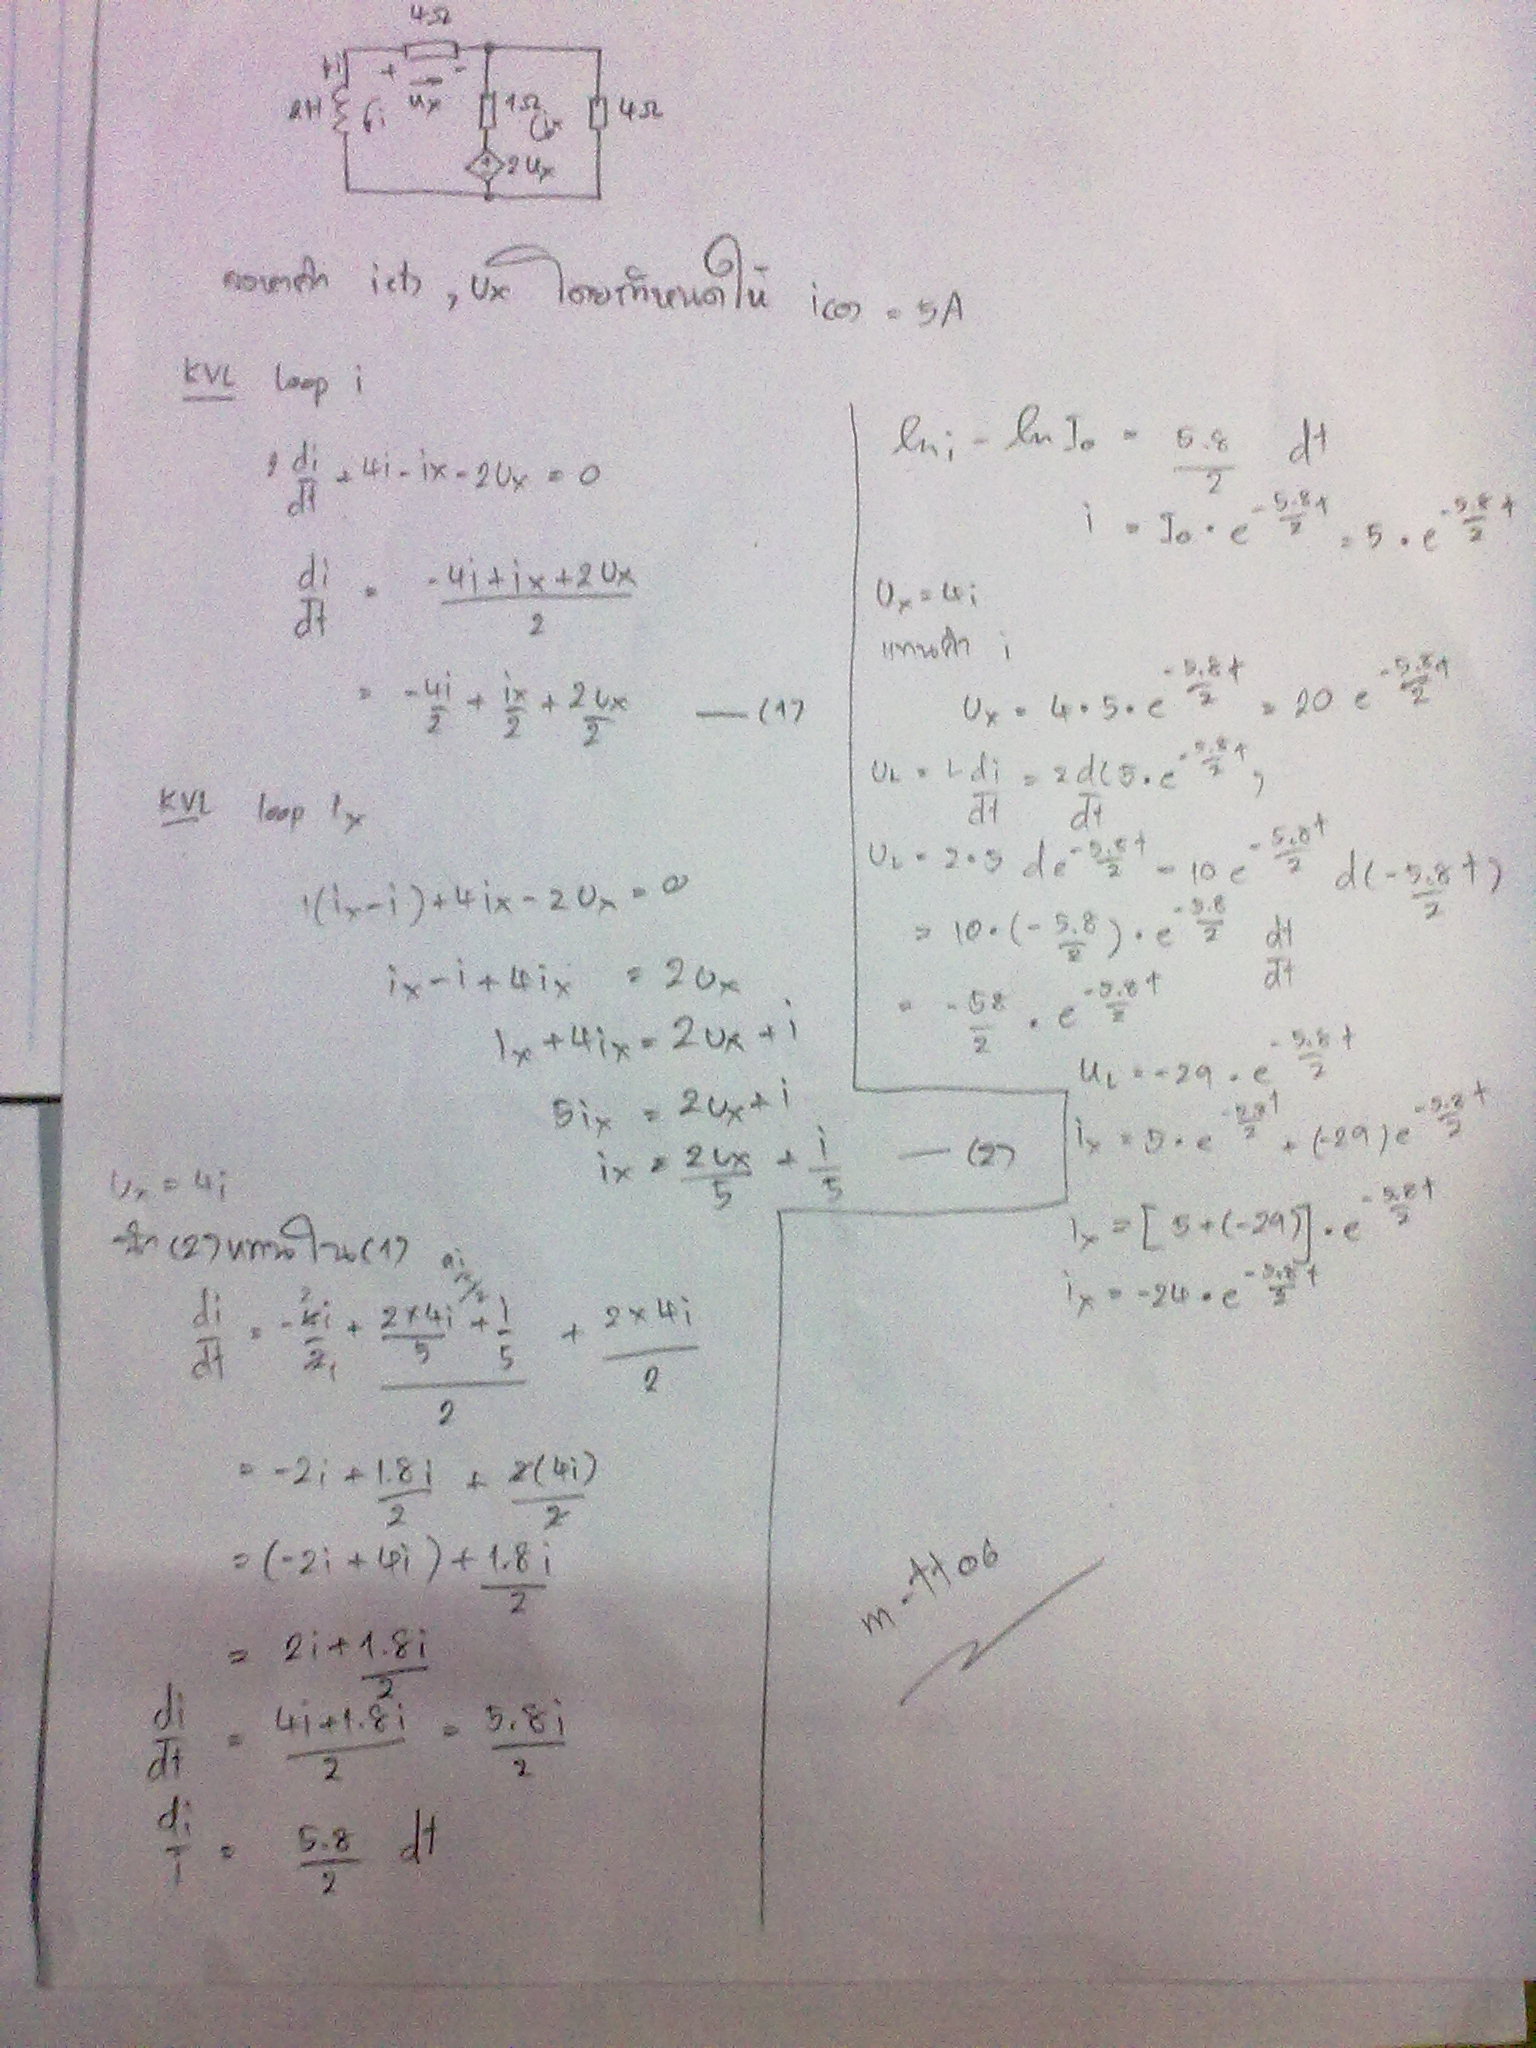 4Ω
+ -
2H i ux 1Ω ix 4Ω
2Ux
i(t), Ux โดยกำหนดให้ i(0) = 5A
KVL loop i
2 di/dt + 4i - ix - 2Ux = 0
di/dt = (-4i + ix + 2Ux)/2
= -4i/2 + ix/2 + 2Ux/2 — (1)
KVL loop ix
1(ix - i) + 4ix - 2Ux = 0
ix - i + 4ix = 2Ux
ix + 4ix = 2Ux + i
5ix = 2Ux + i
ix = 2Ux/5 + i/5 — (2)
Ux = 4i
(2) แทนใน (1)
di/dt = -4i/2 + (2×4i/5 + i/5)/2 + 2×4i/2
= -2i + 1.8i/2 + 2(4i)/2
= (-2i + 4i) + 1.8i/2
= 2i + 1.8i/2
di/dt = (4i + 1.8i)/2 = 5.8i/2
di/i = 5.8/2 dt
ln i - ln I₀ = 5.8/2 dt
i = I₀ · e^(-5.8/2 t) = 5 · e^(-5.8/2 t)
Ux = 4i
แทนค่า i
Ux = 4 · 5 · e^(-5.8/2 t) = 20 e^(-5.8/2 t)
UL = L di/dt = 2 d(5 · e^(-5.8/2 t))/dt
UL = 2 · 5 de^(-5.8/2 t) = 10 e^(-5.8/2 t) d(-5.8/2 t)
= 10 · (-5.8/2) · e^(-5.8/2) dt/dt
= -58/2 · e^(-5.8/2 t)
UL = -29 · e^(-5.8/2 t)
ix = 5 · e^(-5.8/2 t) + (-29) e^(-5.8/2 t)
ix = [5 + (-29)] · e^(-5.8/2 t)
ix = -24 · e^(-5.8/2 t)